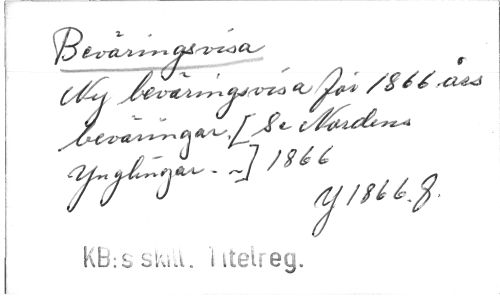 Beväringsvisa
Ny beväringsvisa för 1866 års
beväringar. [Se Nordens
Ynglingar. ~] 1866
Y 1866. 8.
KB:s skill. Titelreg.